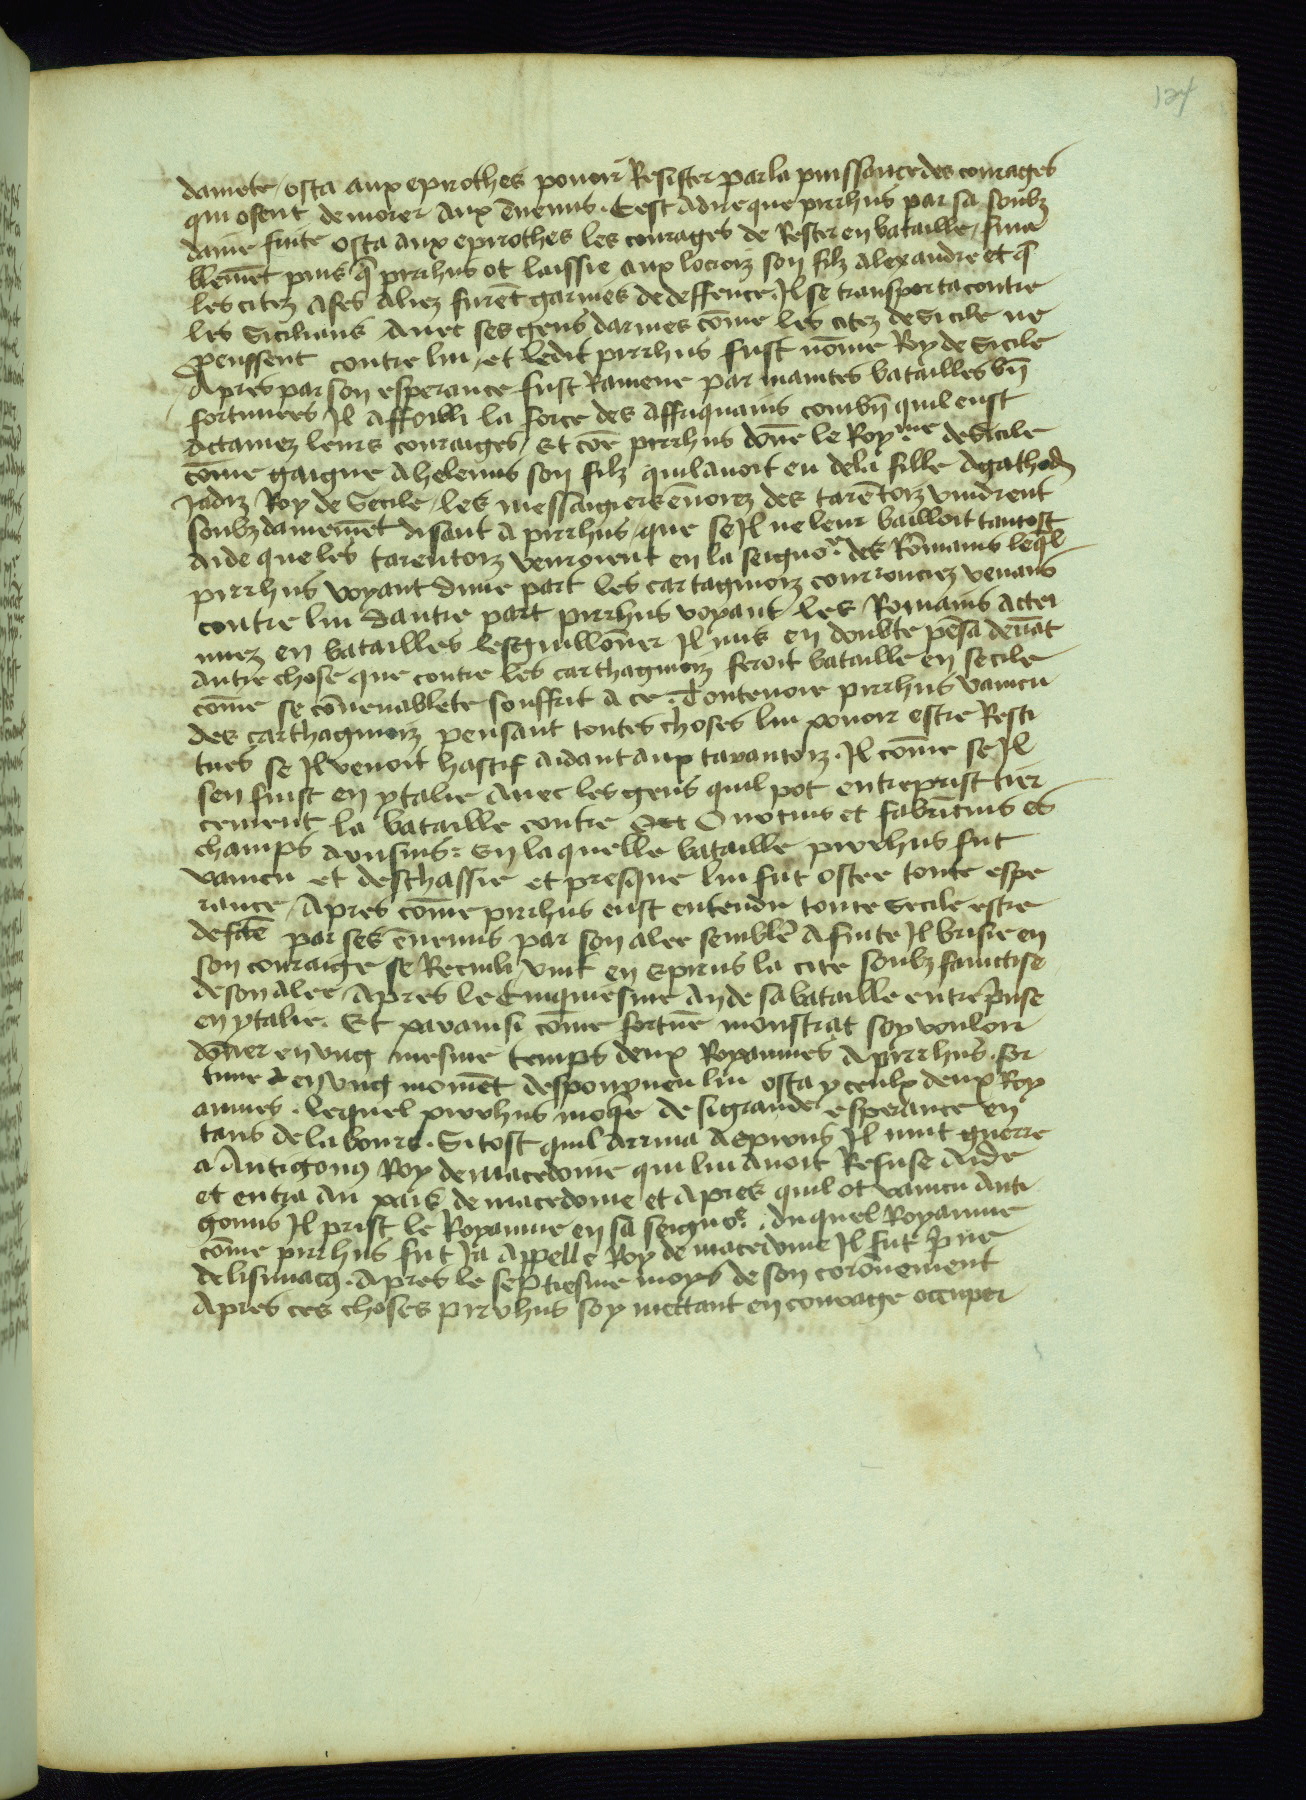 127
damete / osta aux epirothes pouoir Resister par la puissance des courages
qui osent demorer aux ēnemis . Cest adire que pirrhus par sa soubz
daine fuite osta aux epirothes les courages de Rester en bataille / fina
blemēt puis q̄ pirrhus ot laissie aux locroiz son filz alexandre et q̄
les citez a ses aliez furēt garnies de deffence . Il se transporta contre
les Sicilians Auec ses gens darmes cōme les citez de Sicile ne
peussent contre lui / et ledit pirrhus fust nōme Roy de Sicile
Apres par son esperance fust Ramene par maintes batailles bn̄
fortunees / Il affoibli la force des affriquains combn̄ quil eust
actainez leurs couraiges / Et cōe pirrhus dōne le Royme de Sicile
cōme gaigne a helenus son filz quil auoit eu de la fille Agathod
Jadiz Roy de Secile / les messaigiers ēnoiez des tarētoiz vindrent
soubzdainemēt disant a pirrhus / que se Il ne leur bailloit tantost
aide que les tarentoiz venroient en la seignor. des Rōmains leq̄l
pirrhus voyant dune part les cartaginoiz courrouciez venans
contre lui dautre part pirrhus voyant les Romains actei
nez en batailles lesguillōner Il mis en doubte pēsa deuāt
autre chose que contre les carthaginoiz feroit bataille en secile
cōme se cōuenablete souffrit a ce . Contenoie pirrhus vaincu
des carthaginoiz pensant toutes choses lui pouoir estre Resti
tues se Il venoit hastif aidant aux tarantoiz . Il cōme se Il
sen fuist en ytalie auec les gens quil pot entreprist tier
cement la bataille contre Curius et fabricius es
champs arusins : En laquelle bataille pirrhus fut
vaincu et deschassie et presque lui fut ostee toute espe
rance / Apres cōme pirrhus eust entendu toute Secile estre
par ses ēnemis par son alee semblē a fuite Il brisie en
son couraige se Recuili vint en Epirus la cite soubz faintise
de son alee / Apres le Cinquiesme an de sa bataille entreprise
en ytalie . Et par ainsi cōme fortune monstrat soy vouloir
dōner en vng mesme temps deux Royaumes a pirrhus . for
tune en vng momēt despourueu lui osta yceulx deux Roy
aumes . lequel pirrhus moq̄e de si grande esperance en
tans de labours . Si tost quil arriua a epirus Il mut guerre
a Antigonus Roy de macedoine qui lui auoit Refuse aide
et entra au pais de macedoine et apres quil ot vaincu Anti
gonus Il prist le Royaume en sa seignor. . duquel Royaume
cōme pirrhus fut Ja appelle Roy de macedoine Il fut priue
de lisimacus . Apres le septiesme moys de son corōnement
Apres ces choses pirrhus soy mettant en courage occuper